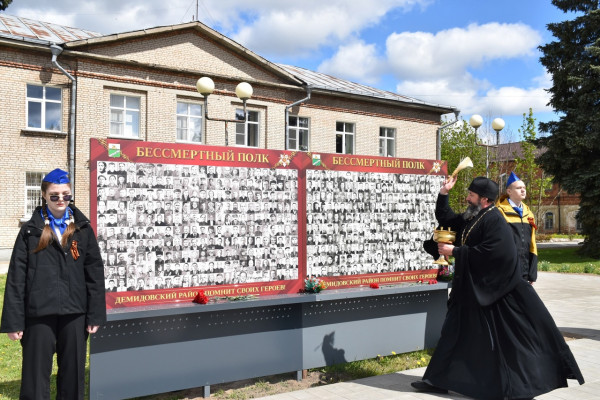 БЕССМЕРТНЫЙ ПОЛК
ДЕМИДОВСКИЙ РАЙОН ПОМНИТ СВОИХ ГЕРОЕВ
БЕССМЕРТНЫЙ ПОЛК
ДЕМИДОВСКИЙ РАЙОН ПОМНИТ СВОИХ ГЕРОЕВ